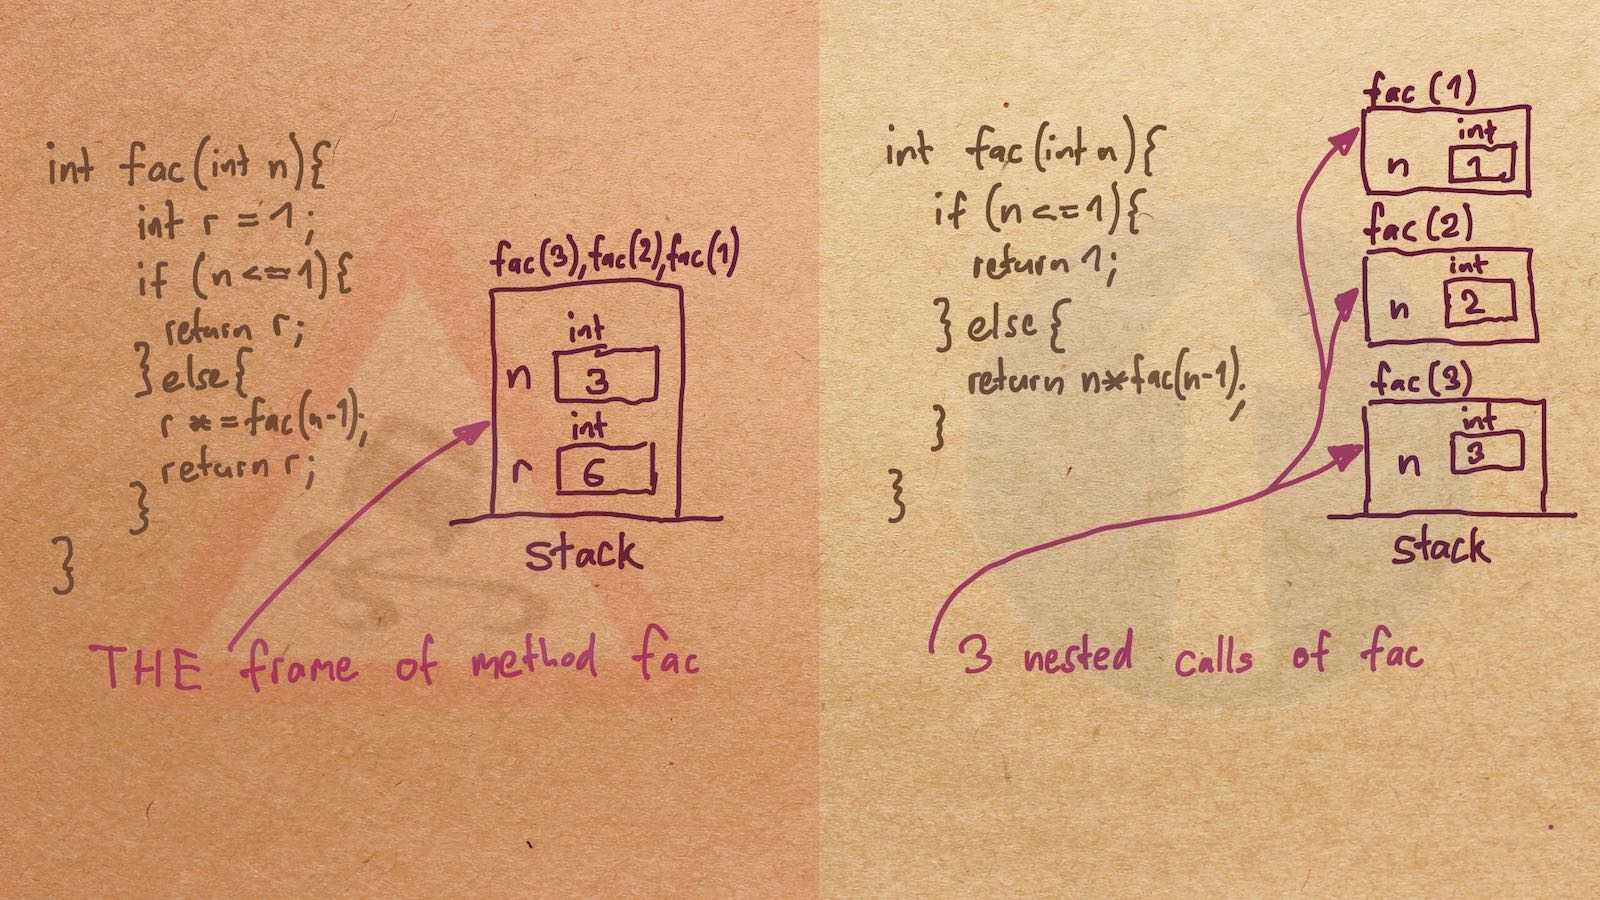 int fac(int n){
int r = 1;
if (n<=1){
return r;
}else{
r *=fac(n-1);
return r;
}
}
fac(3),fac(2),fac(1)
int
n 3
int
r 6
Stack
THE frame of method fac
int fac(int n){
if (n<=1){
return 1;
} else {
return n*fac(n-1);
}
}
fac(1)
int
n 1
fac(2)
int
n 2
fac(3)
int
n 3
Stack
3 nested calls of fac